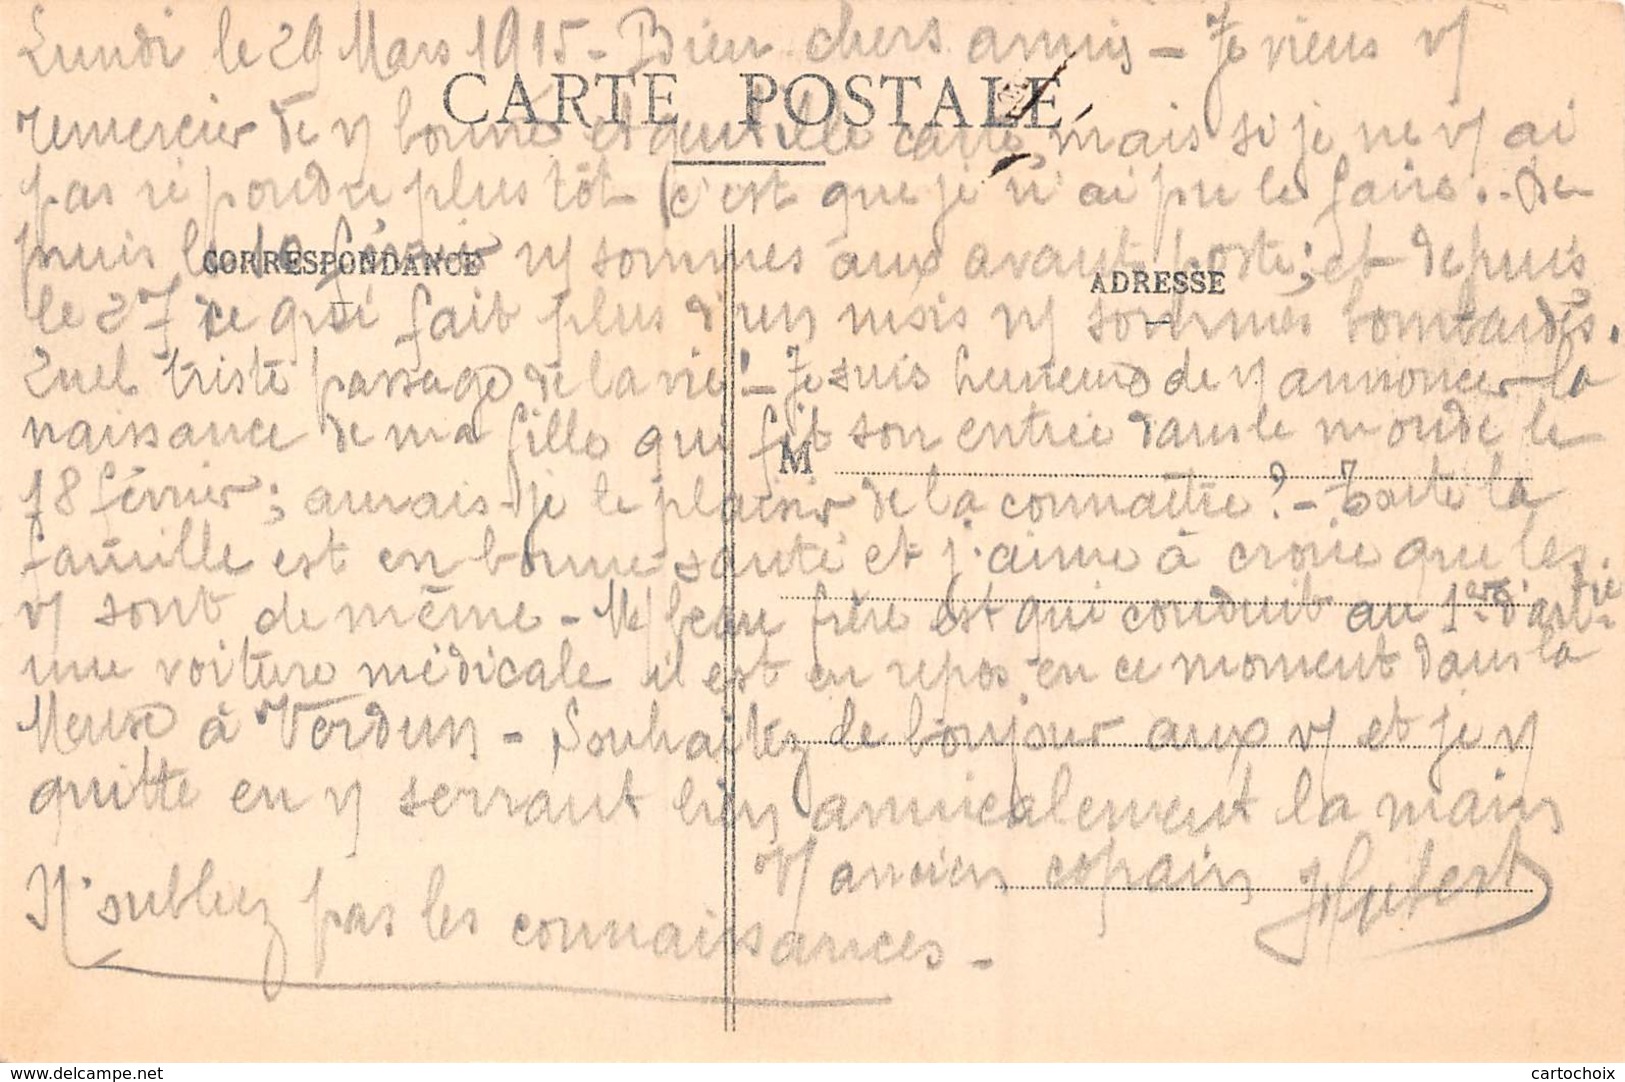 Lundi le 29 Mars 1915 - Bien chers amis - Je viens v/
CARTE POSTALE
remercier de v/ bonne et gentille carte, mais si je ne v/ ai
pas répondu plus tôt c'est que je n'ai pu le faire. - De
CORRESPONDANCE
ADRESSE
puis le 10 février n/ sommes aux avant poste ; et depuis
le 27 ce qui fait plus d'un mois n/ sommes bombardés.
Quel triste passage de la vie ! - Je suis heureux de v/ annoncer la
naissance de ma fille qui fit son entrée dans le monde le
M
18 février ; aurais-je le plaisir de la connaître ? - Toute la
famille est en bonne santé et j'aime à croire que les
v/ sont de même - M/ beau frère est qui conduit au 1er d'artrie
une voiture médicale il est en repos en ce moment dans la
Meuse à Verdun - Souhaitez le bonjour aux v/ et je v/
quitte en v/ serrant bien amicalement la main
V/ ancien copain JHubert
N'oubliez pas les connaissances -
delcampe.net
cartochoix